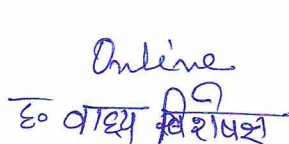 Online
ह० बाह्य विशेषज्ञ